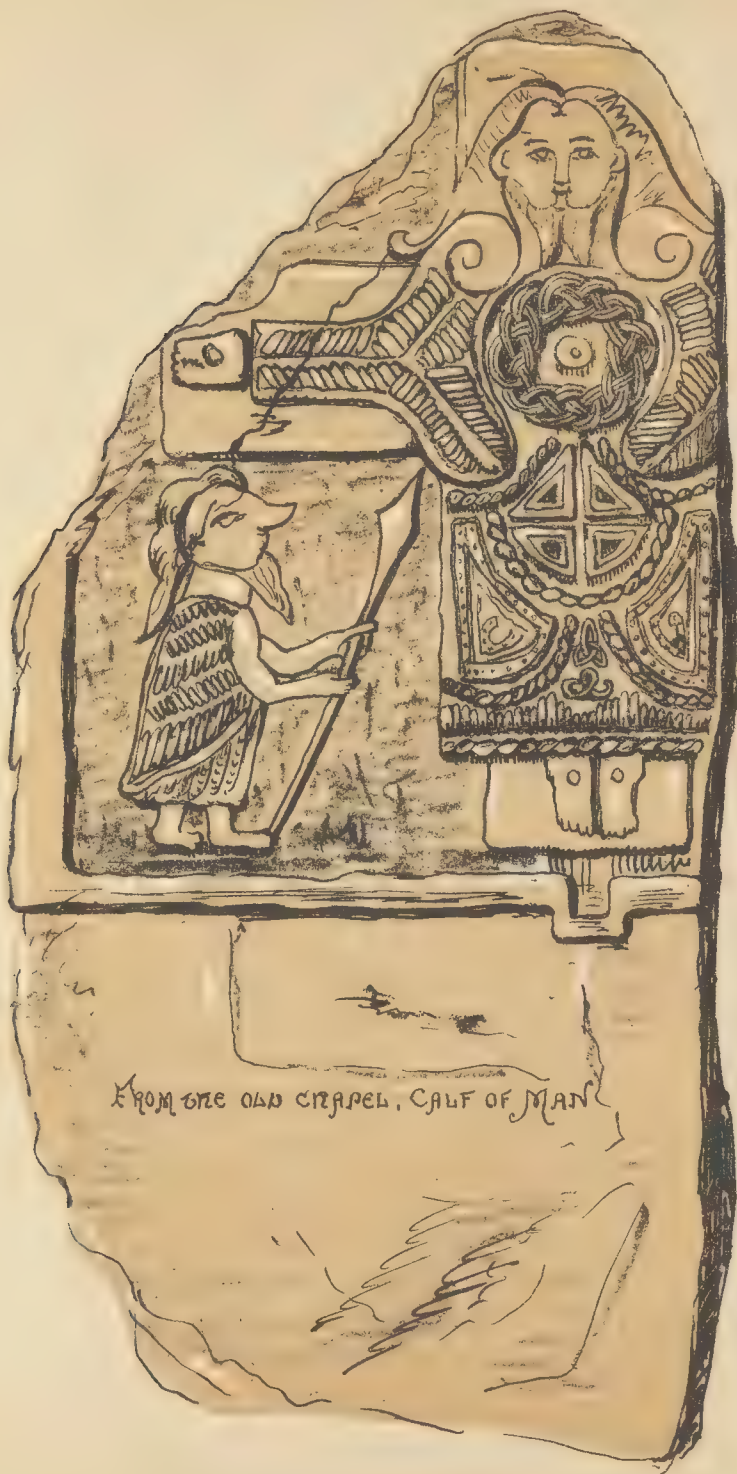 From the old chapel, Calf of Man